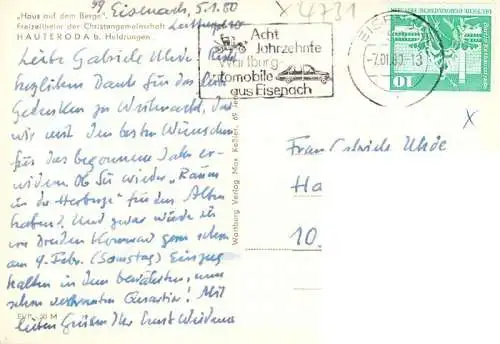 99 Eisenach, 5.1.80
x 4731
"Haus auf dem Berge",
Freizeitheim der Christengemeinschaft
HAUTERODA b. Heldrungen
Liebe Gabriele Uhde! Recht
herzlichen Dank für das liebe
Gedenken zu Weihnacht, das
wir mit den besten Wünschen
für das begonnene Jahr er-
widern. Ob Sie wieder "Raum
in der Herberge" für den Alten
haben? Und zwar würde ich
von Dresden kommend gern schon
am 9. Febr. (Samstag) Einzug
halten in dem bewährten, nun
schon vertrauten Quartier! Mit
lieben Grüßen Ihr
EVP -,20 M
Wartburg Verlag Max Keßler, 69 Jena
Acht
Jahrzehnte
Wartburg-
Automobile
aus Eisenach
EISENACH
-7.01.80-13
10
x
Frau Gabriele Uhde
Ha
10.